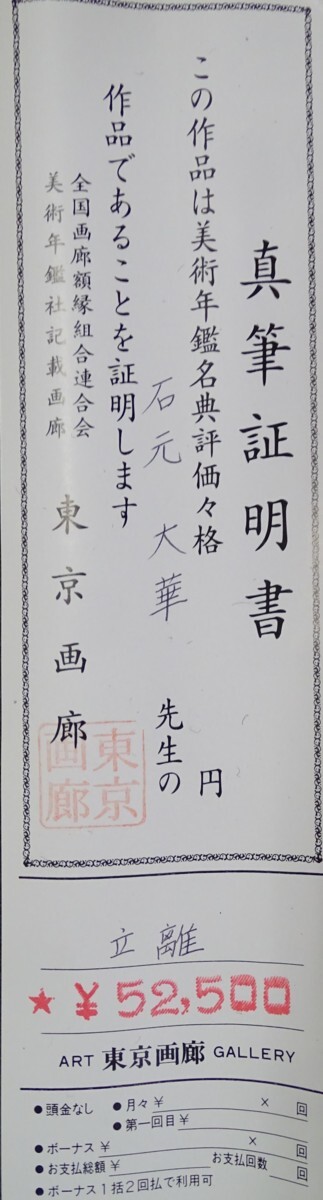 真筆証明書
この作品は美術年鑑名典評価々格 円
石元 大華 先生の
作品であることを証明します
全国画廊額縁組合連合会
美術年鑑社記載画廊
東京画廊
東京画廊
立離
★ ¥52,500
ART 東京画廊 GALLERY
●頭金なし ●月々 ¥ × 回
●第一回目 ¥
●ボーナス ¥ × 回
●お支払総額 ¥ お支払回数 回
●ボーナス1括2回払で利用可